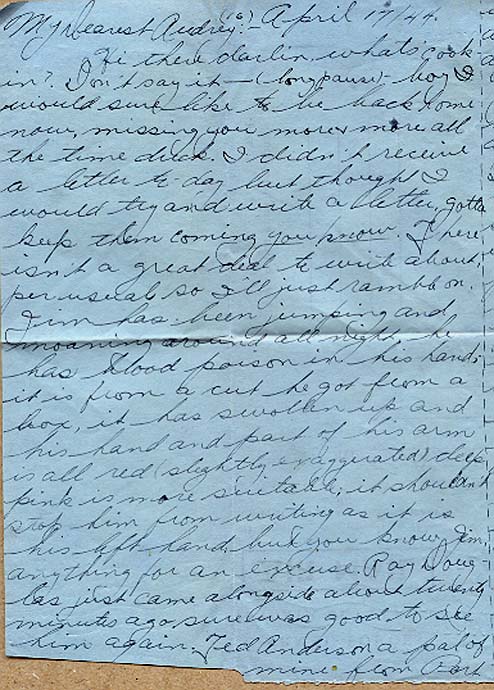 My dearest Audrey:- (10) April 17/44.
Hi there darlin, what's cook-
in? Don't say it - (long pause) - boy I
would sure like to be back home
now, missing you more & more all
the time dick. I didn't receive
a letter to day but thought I
would try and write a letter, gotta
keep them coming you know. There
isn't a great deal to write about,
per usual so I'll just ramble on.
Jim has been jumping and
moaning around all night, he
has blood poison in his hand;
it is from a cut he got from a
box, it has swollen up and
his hand and part of his arm
is all red (slightly exaggerated) deep
pink is more suitable, it shouldn't
stop him from writing as it is
his left hand, but you know Jim,
anything for an excuse. Ray Doug-
las just came alongside about twenty
minutes ago, sure was good to see
him again. Ted Anderson a pal of
mine from Port